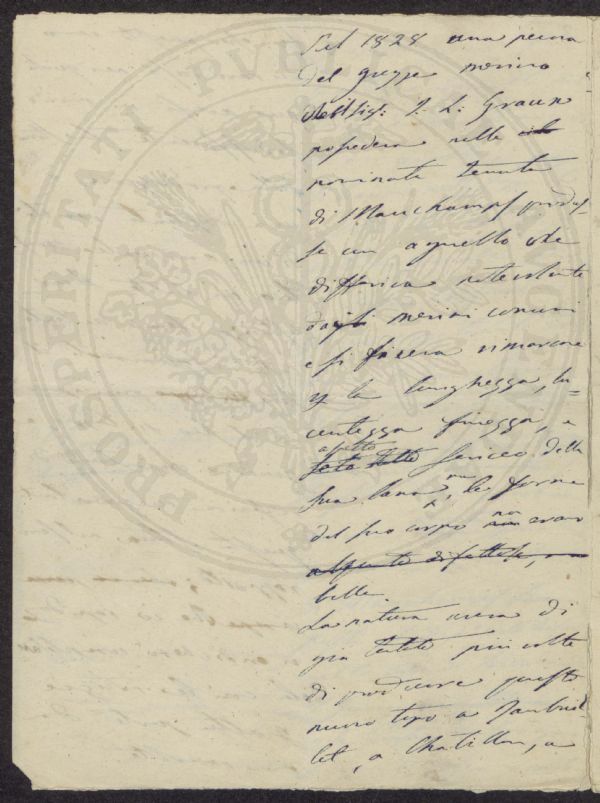 Nel 1828 una pecora
del gregge merino
del Sig: J. L: Graux
posseduta nella
nominata tenuta
di Mauchampf produs-
se un agnello che
differiva notevolmente
dagli merini comuni
e si faceva rimarcare
p la lunghezza, lu-
centezza finezza, e
aspetto
serico della
sua lana, ma le forme
del suo corpo non erano
belle.
La natura aveva di
già tentato più volte
di produrre questo
nuovo tipo a Rambuil-
let, a Chatillon, a
PROSPERITATI PVBLICAE